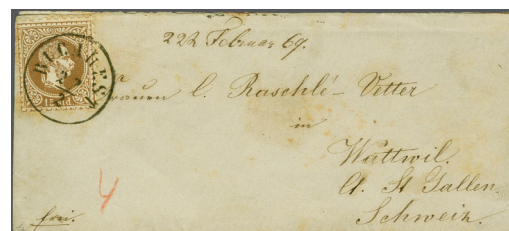 222 Februar 69.
BUCAREST
Frauen C. Raschlé-Vetter
in
Wattwil.
Ct. St Gallen.
Schweiz.
4
frei.